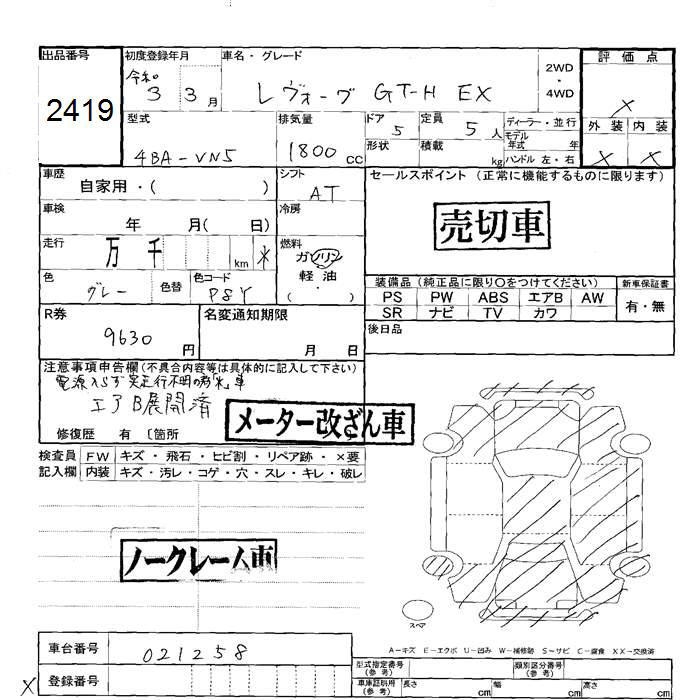 出品番号
2419
初度登録年月
令和
3 3月
車名・グレード
レヴォーグ GT-H EX
2WD
・
4WD
評価点
X
外装 内装
X X
型式
4BA-VN5
排気量
1800cc
ドア
5
定員
5人
形状
積載
kg
ディーラー・並行
モデル年式 年
ハンドル 左・右
車歴
自家用・( )
シフト
AT
セールスポイント (正常に機能するものに限ります)
売切車
車検
年 月( 日)
冷房
走行
万千 km *
燃料
ガソリン
軽油
( ・ )
色
グレー
色替
色コード
P8Y
装備品 (純正品に限り○をつけてください)
PS PW ABS エアB AW
SR ナビ TV カワ
新車保証書
有・無
R券
9630円
名変通知期限
月 日
後日品
注意事項申告欄(不具合内容等は具体的に記入して下さい)
電源入らず実走行不明の為*車
エアB展開済
メーター改ざん車
修復歴 有 〔箇所
検査員
記入欄
FW キズ・飛石・ヒビ割・リペア跡・×要
内装 キズ・汚レ・コゲ・穴・スレ・キレ・破レ
ノークレーム車
スペア
A-キズ E-エクボ U-凹み W-補修跡 S-サビ C-腐食 XX-交換済
車台番号
021258
X 登録番号
型式指定番号
(参考)
類別区分番号
(参考)
車庫証明用
(参考)
長さ cm 幅 cm 高さ cm